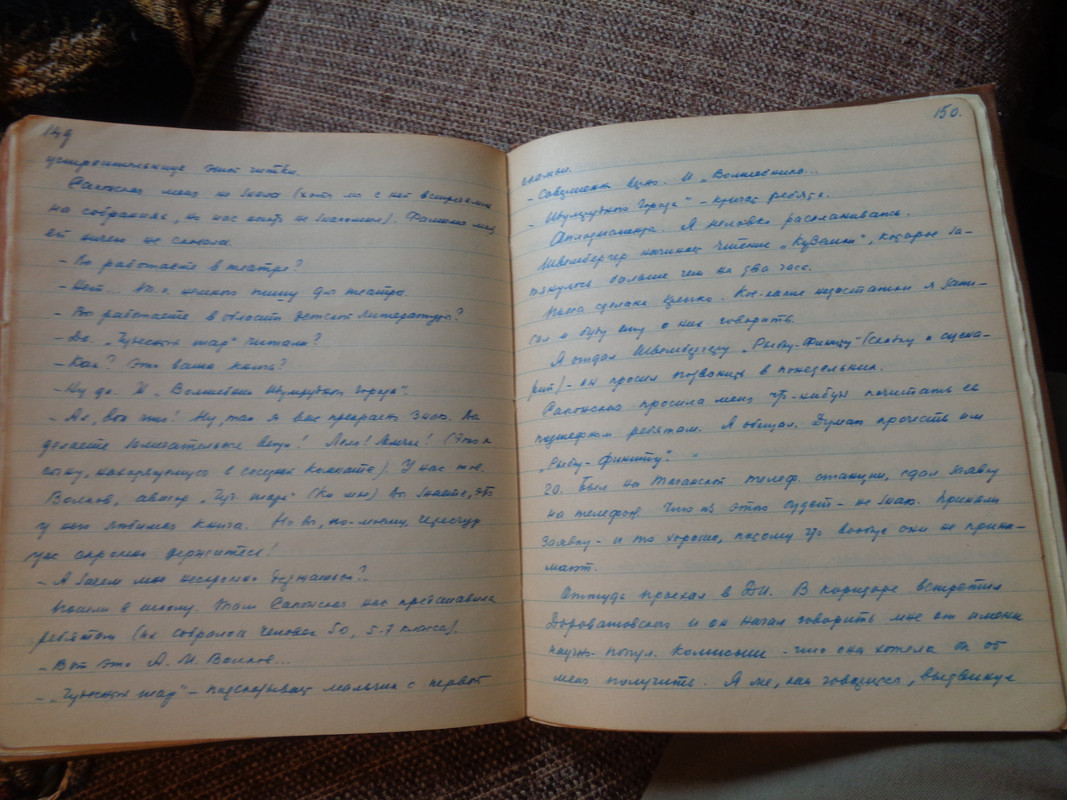 149
устроительнице этой читки.
Сапожская меня не знала (хотя мы с ней встречались
на собраниях, но нас никто не знакомил). Фамилия моя
ей ничего не сказала.
- Вы работаете в театре?
- Нет... Но я немного пишу для театра.
- Вы работаете в области детской литературы?
- Да. „Чудесный шар" читали?
- Как? Это ваша книга?
- Ну да. И „Волшебник Изумрудного города".
- Ах, вот что! Ну, так я вас прекрасно знаю. Вы
делаете замечательные вещи! Леня! Ленечка! (Это к
сыну, находящемуся в соседней комнате). У нас тов.
Волков, автор „Чуд. шара" (Ко мне) Вы знаете, это
у него любимая книга. Но вы, по-моему, чересчур
уж скромно держитесь!
- А зачем мне нескромно держаться?..
Пошли в школу. Там Сапожская нас представила
ребятам (их собралось человек 50, 5-7 класса).
- Вот это А. М. Волков...
- „Чудесный шар" - подсказывает мальчик с первой
150.
скамьи.
- Совершенно верно. И „Волшебника...
- Изумрудного города" - кричат ребята.
Аплодисменты. Я неловко раскланиваюсь.
Швембергер начинает чтение „Кузьмы", которое за-
тянулось больше чем на два часа.
Пьеса сделана цепко. Кое-какие недостатки я запи-
сал и буду ему о них говорить.
Я отдал Швембергеру „Рыбку-Финиту" (сказку и сцена-
рий) - он просил позвонить в понедельник.
Сапожская просила меня что-нибудь почитать ее
подшефным ребятам. Я обещал. Думаю прочесть им
„Рыбку-Финиту".
20. Был на Таганской телеф. станции, сдал заявку
на телефон. Что из этого будет - не знаю. Приняли
заявку - и то хорошо, потому что вообще они не прини-
мают.
Оттуда проехал в ДИ. В коридоре встретил
Дороватовского и он начал говорить мне от имени
научно-попул. комиссии - что она хотела бы от
меня получить. Я же, как говорится, выдвинул